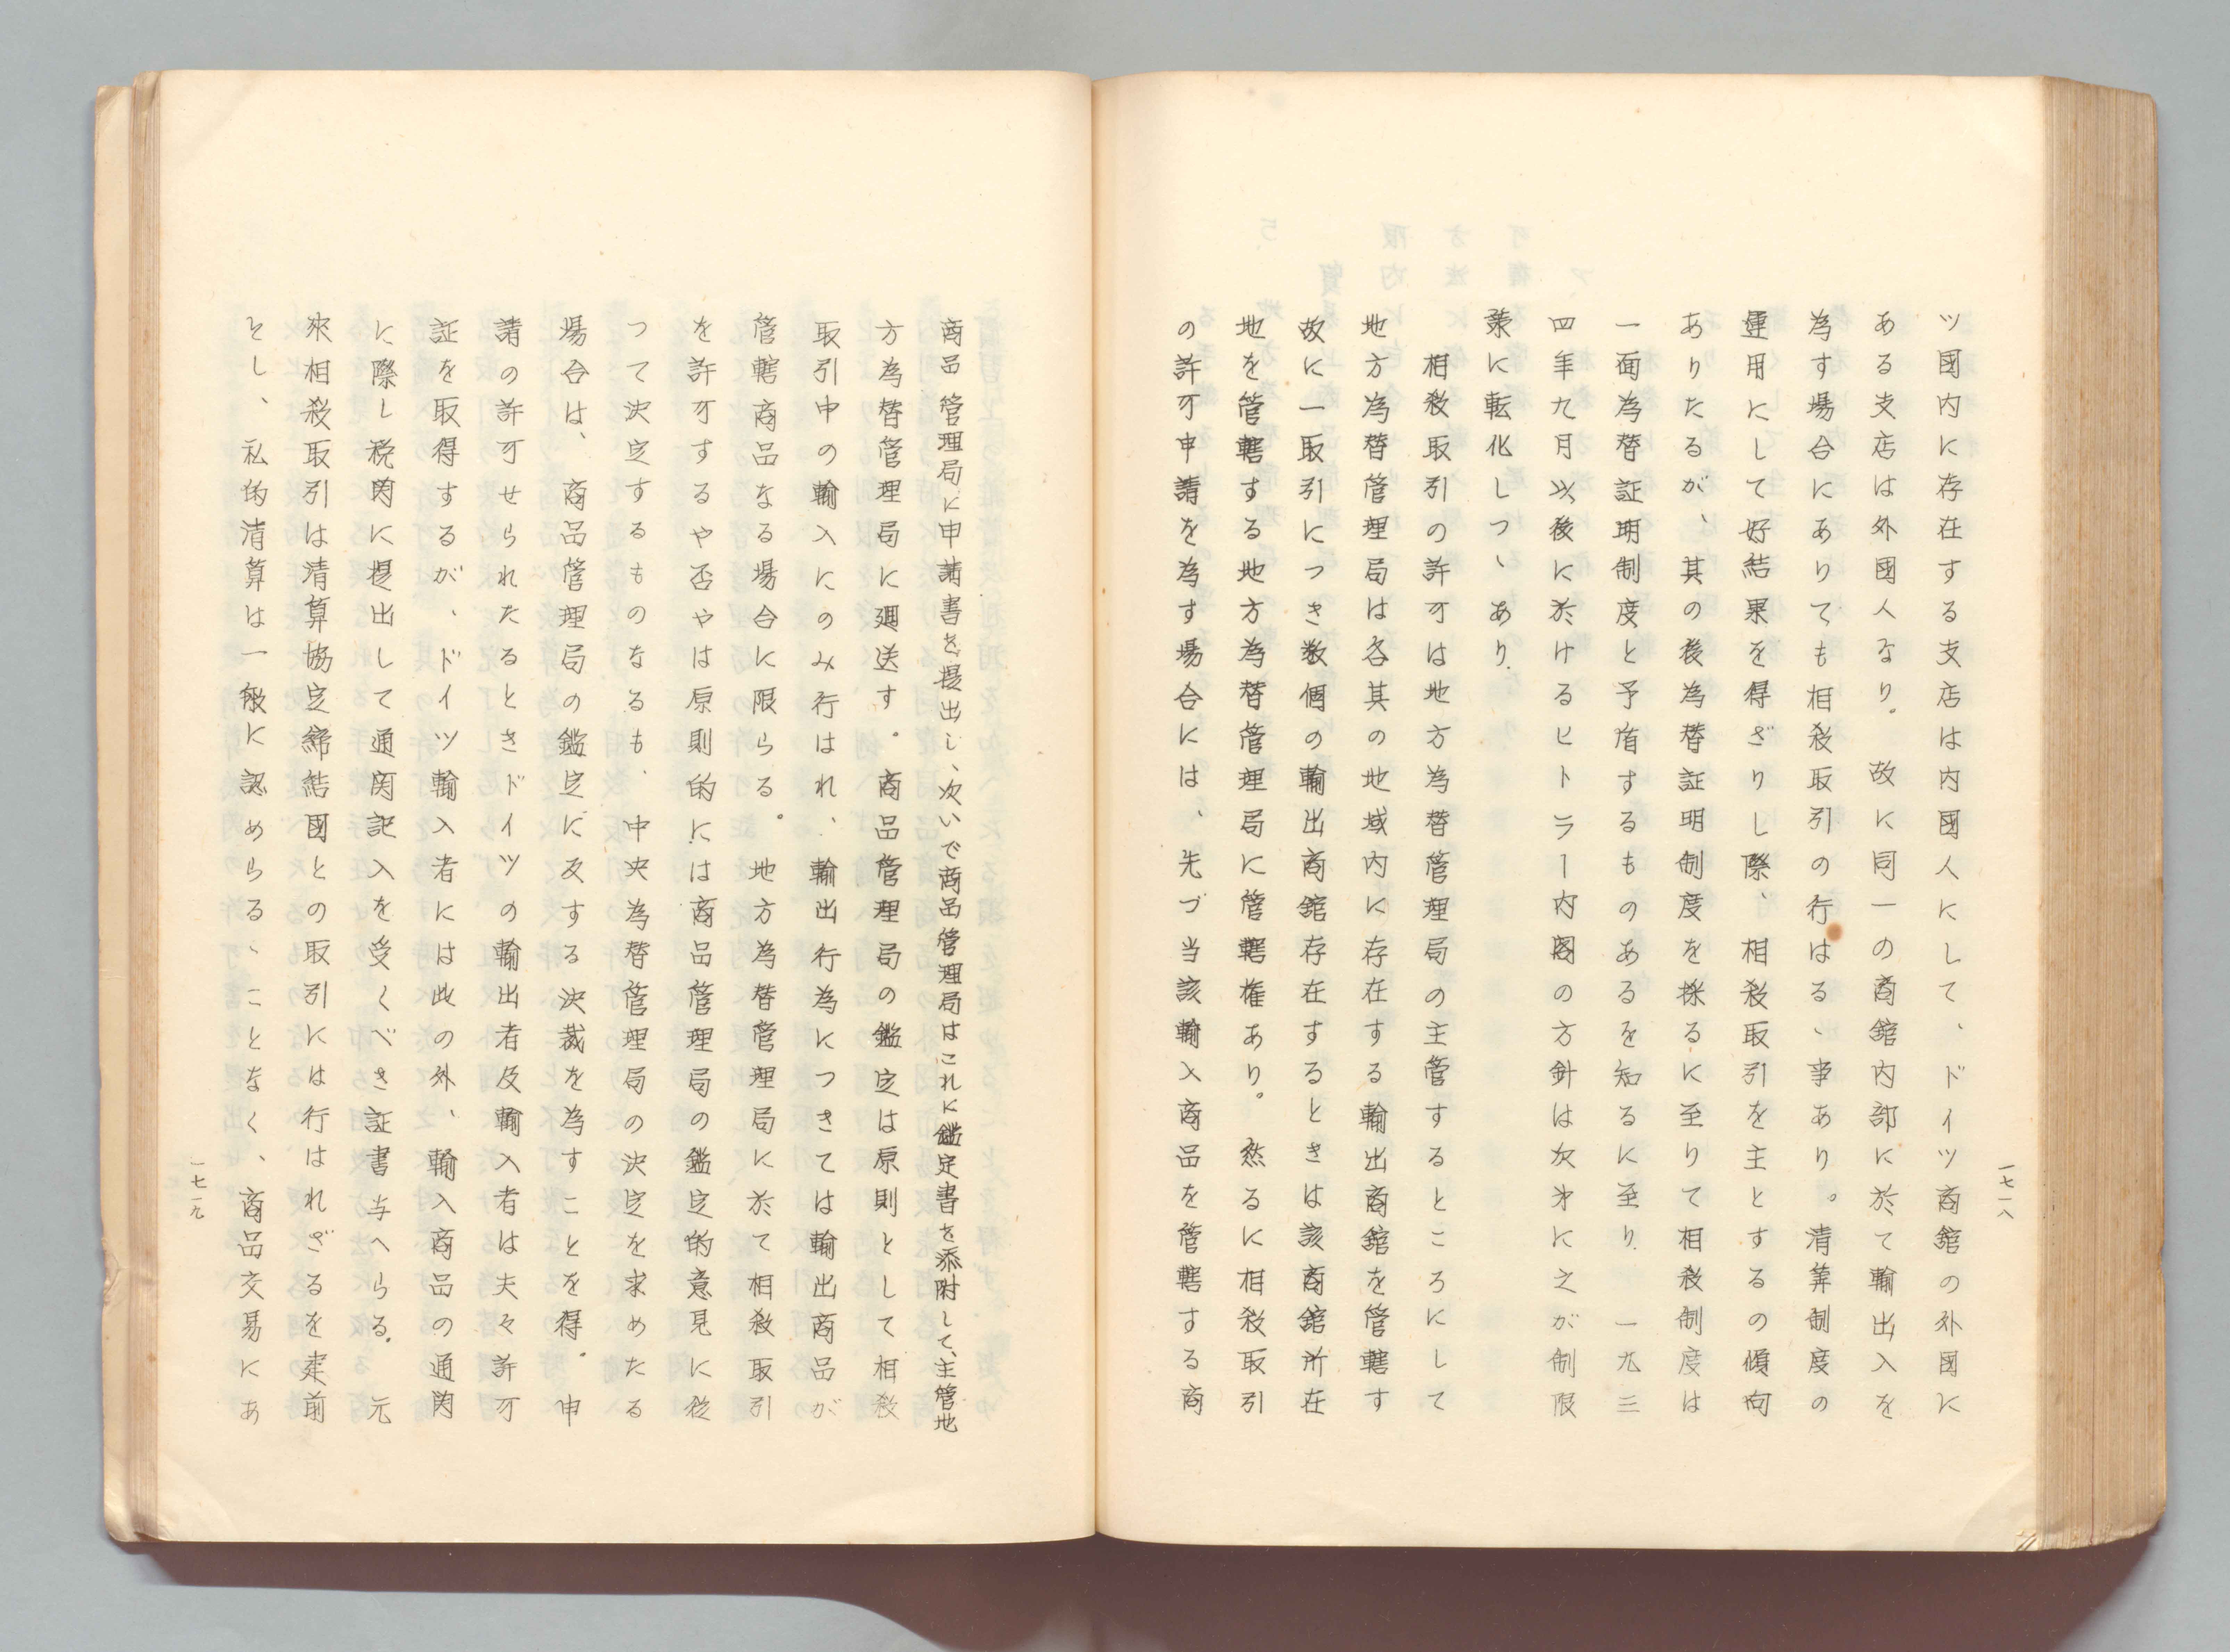 ツ國内に存在する支店は内國人にして、ドイツ商舘の外國に
ある支店は外國人なり。故に同一の商舘内部に於て輸出入を
為す場合にありても相殺取引の行はるゝ事あり。清算制度の
運用にして好結果を得ざりし際、相殺取引を主とするの傾向
ありたるが、其の後為替証明制度を採るに至りて相殺制度は
一面為替証明制度と予盾するものあるを知るに至り、一九三
四年九月以後に於けるヒトラー内閣の方針は次㐧に之が制限
策に転化しつゝあり。
相殺取引の許可は地方為替管理局の主管するところにして
地方為替管理局は各其の地域内に存在する輸出商舘を管轄す
故に一取引につき数個の輸出商舘存在するときは該商舘所在
地を管轄する地方為替管理局に管轄権あり。然るに相殺取引
の許可申請を為す場合には、先づ当該輸入商品を管轄する商
一七一八
商品管理局に申請書を提出し、次いで商品管理局はこれに鑑定書を添附して、主管地
方為替管理局に廻送す。商品管理局の鑑定は原則として相殺
取引中の輸入にのみ行はれ、輸出行為につきては輸出商品が
管轄商品なる場合に限らる。地方為替管理局に於て相殺取引
を許可するや否やは原則的には商品管理局の鑑定的意見に從
つて決定するものなるも、中央為替管理局の決定を求めたる
場合は、商品管理局の鑑定に反する決裁を為すことを得。申
請の許可せられたるときドイツの輸出者及輸入者は夫々許可
証を取得するが、ドイツ輸入者には此の外、輸入商品の通関
に際し税関に提出して通関記入を受くべき証書与へらる。元
來相殺取引は清算協定締結國との取引には行はれざるを建前
とし、私的清算は一般に認めらるゝことなく、商品交易にあ
一七一九